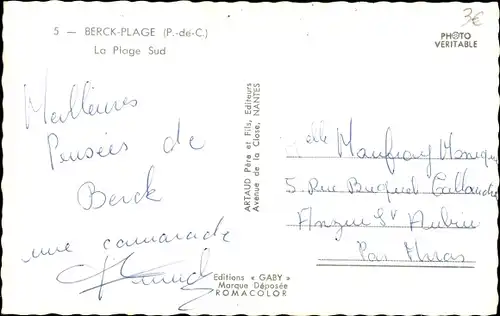 5 — BERCK-PLAGE (P.-de-C.)
La Plage Sud
3€
PHOTO
VERITABLE
Meilleures
Pensées de
Berck
une camarade
ARTAUD Père et Fils, Editeurs
Avenue de la Close, NANTES
Editions « GABY »
Marque Déposée
ROMACOLOR
elle Maufray
5 Rue
Anzin St Aubin
Par Arras